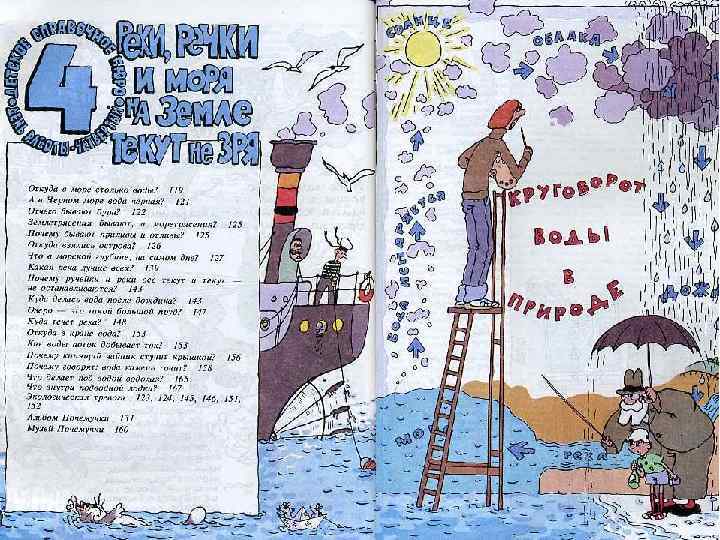 ДЕТСКОЕ СПРАВОЧНОЕ БЮРО
4
РЕКИ, РЕЧКИ
И МОРЯ
НА ЗЕМЛЕ
ТЕКУТ НЕ ЗРЯ
Откуда в море столько воды? 119
А в Черном море вода черная? 121
Отчего бывают бури? 122
Землетрясения бывают, а моретрясения? 125
Почему бывают приливы и отливы? 125
Откуда взялись острова? 126
Что в морской глубине, на самом дне? 127
Какая река лучше всех? 139
Почему ручейки и реки все текут и текут —
не останавливаются? 143
Куда делась вода после дождика? 145
Озеро — это такой большой пруд? 147
Куда течет река? 148
Откуда в кране вода? 153
Как воды поток добывает ток? 153
Почему кипящий чайник стучит крышкой? 156
Почему говорят: вода камень точит? 158
Что делает под водой водолаз? 165
Что внутри подводной лодки? 167
Экологическая тревога 123, 124, 145, 146, 151,
152
Альбом Почемучки 131
Музей Почемучки 160
СОЛНЦЕ
ОБЛАКА
КРУГОВОРОТ
ВОДЫ
В
ПРИРОДЕ
ВОДА ИСПАРЯЕТСЯ
ДОЖДЬ
МОРЕ
РЕКА